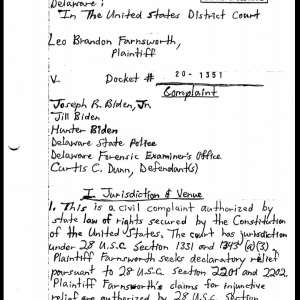 Delaware;
In The United States District Court
Leo Brandon Farnsworth,
Plaintiff
V. Docket # 20-1351
Complaint
Joseph R. Biden, Jr
Jill Biden
Hunter Biden
Delaware State Police
Delaware Forensic Examiner's Office
Curtis C. Dunn, Defendant(s)
I Jurisdiction & Venue
1. This is a civil complaint authorized by
state law of rights secured by the Constitution
of the United States. The court has jurisdiction
under 28 U.S.C. Section 1331 and 1343 (a)(3)
Plaintiff Farnsworth seeks declaratory relief
poursuant to 28 U.S.C. Section 2201 and 2202.
Plaintiff Farnsworth's claims for injunctive
relief are authorized by 28 U.S.C. Section